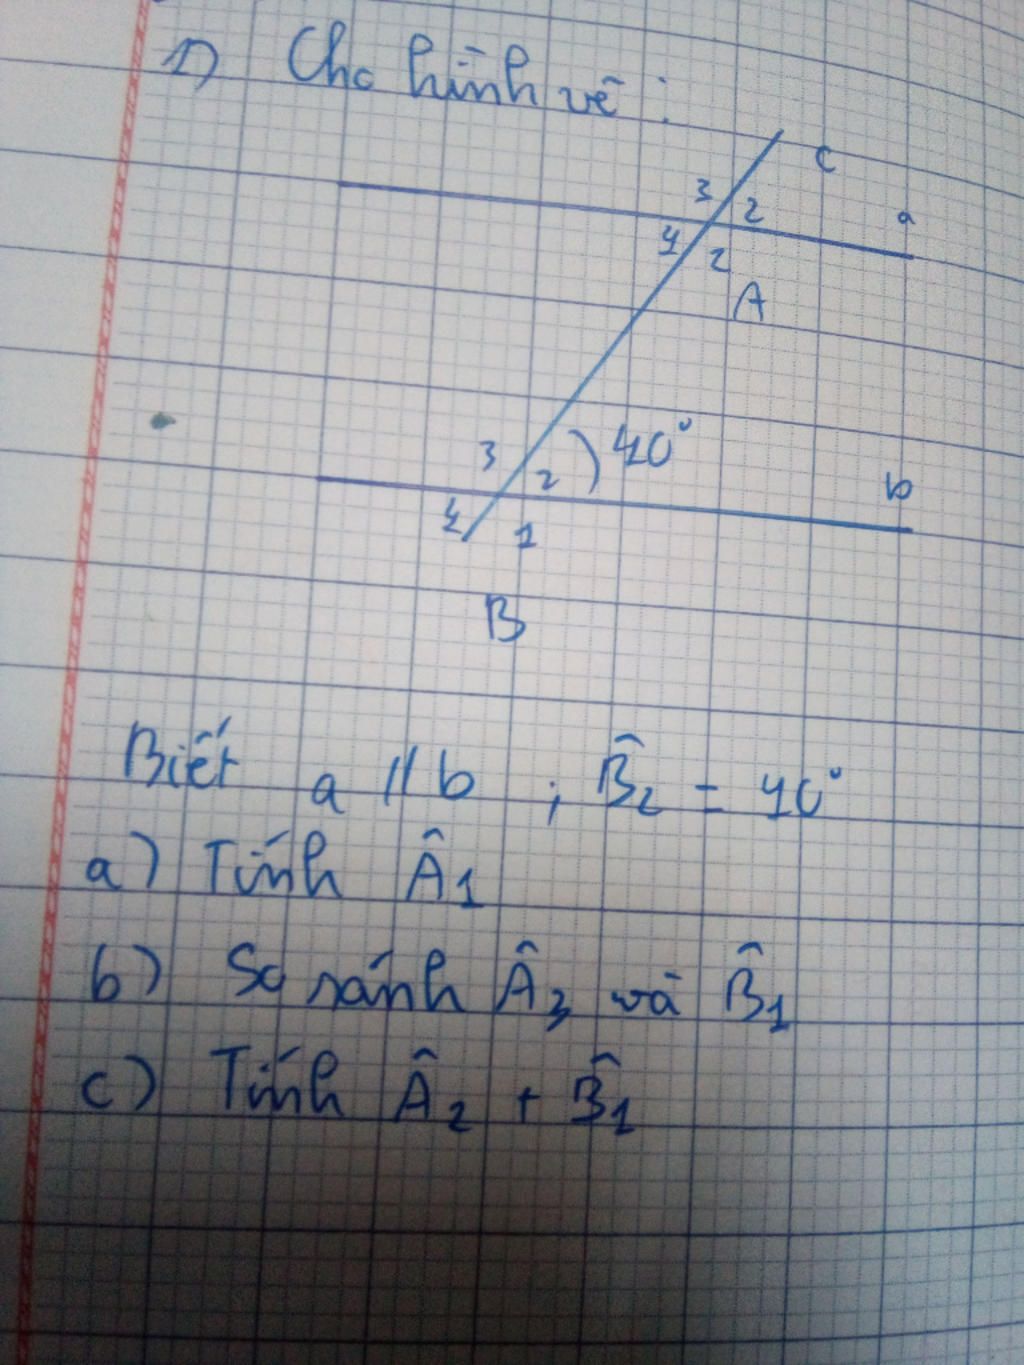 1) Cho hình vẽ :
c
3 2 a
4 2
A
3 2 40°
b
4 1
B
Biết a // b ; B̂2 = 40°
a) Tính Â1
b) So sánh Â3 và B̂1
c) Tính Â2 + B̂1